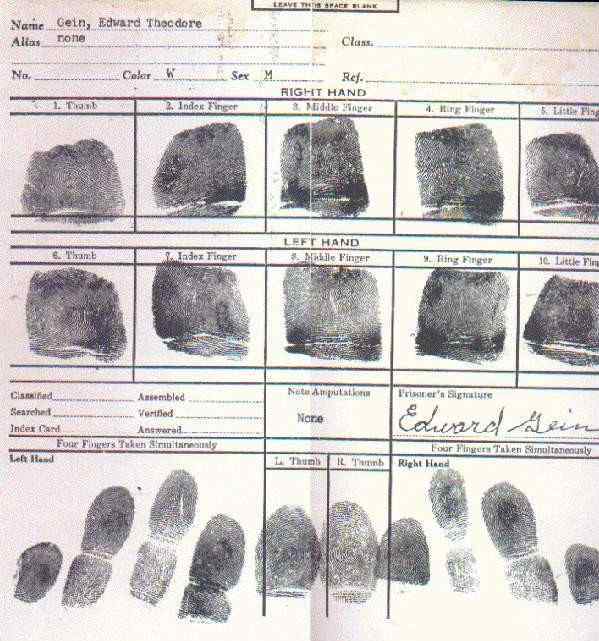 LEAVE THIS SPACE BLANK
Name Gein, Edward Theodore
Alias none Class.
No. Color W Sex M Ref.
RIGHT HAND
1. Thumb 2. Index Finger 3. Middle Finger 4. Ring Finger 5. Little Fing
LEFT HAND
6. Thumb 7. Index Finger 8. Middle Finger 9. Ring Finger 10. Little Fing
Classified Assembled Note Amputations Prisoner's Signature
Searched Verified None Edward Gein
Index Card Answered
Four Fingers Taken Simultaneously Four Fingers Taken Simultaneously
Left Hand L. Thumb R. Thumb Right Hand